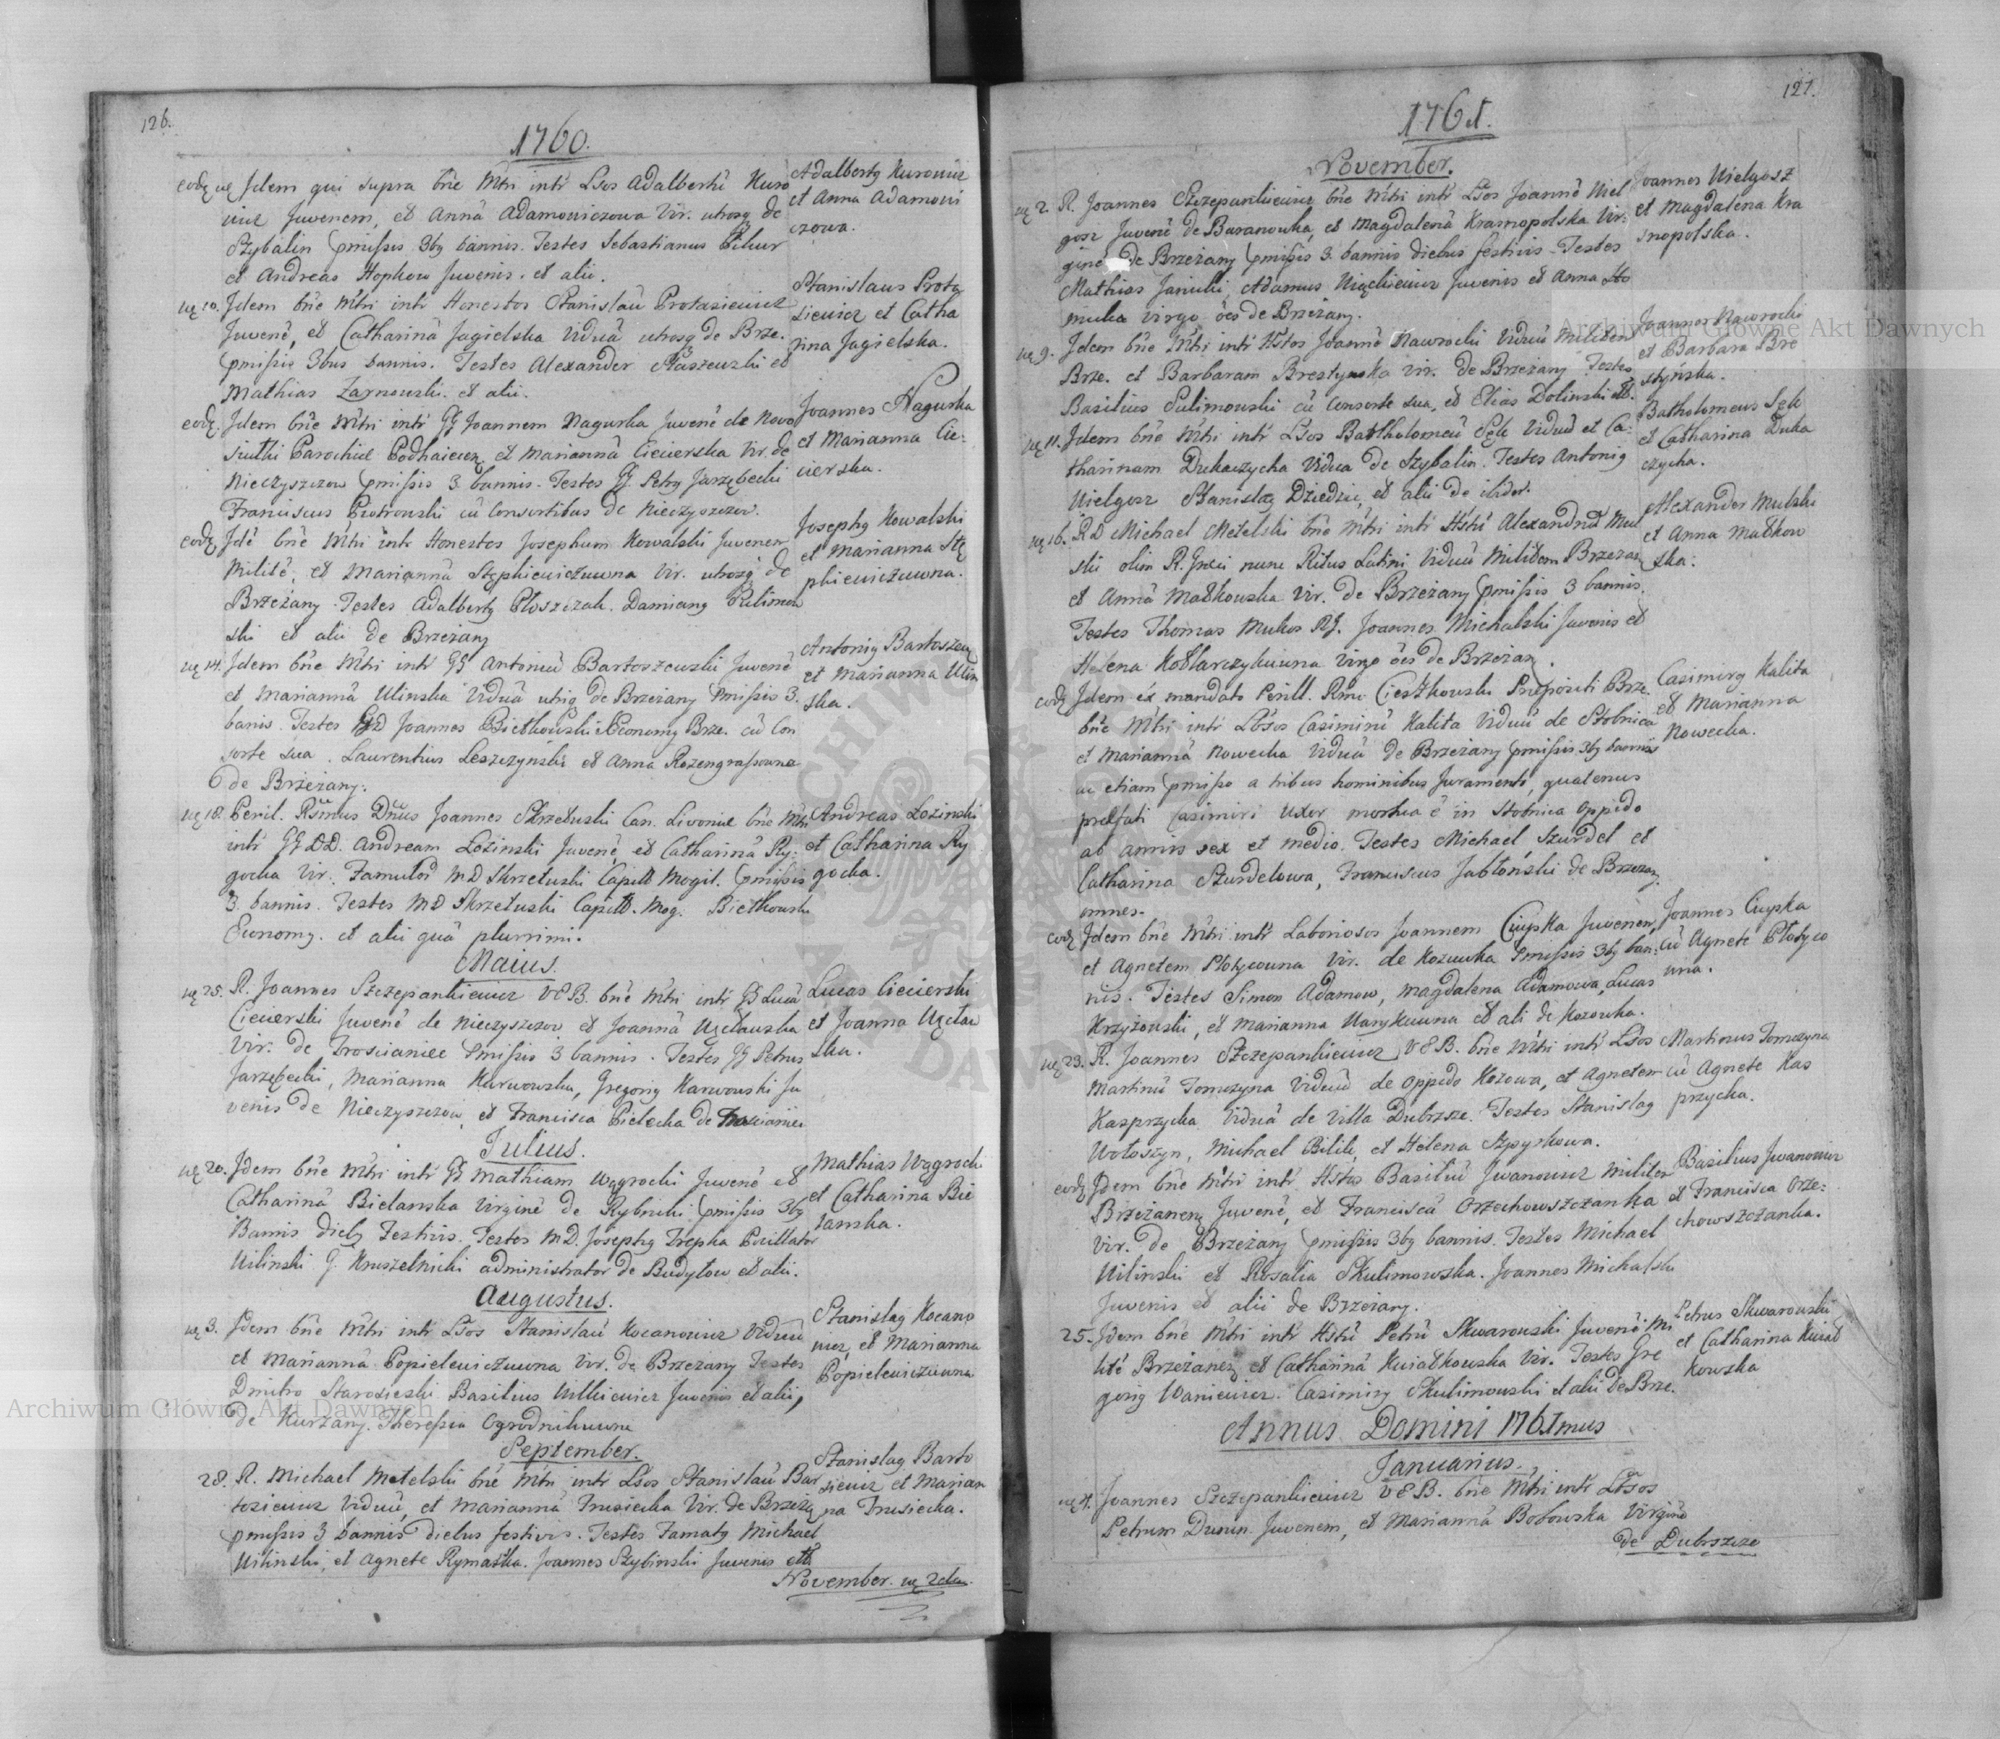 126.
1760.
Idem qui supra bñe Mtri intr Lšos Adalbertũ Kuro
wicz Juvenem, et Annã Adamowiczowa Vir. utrosq de
Szybalin pmissis 3bq bannis. Testes Sebastianus
et Andreas Hopkow Juvenis. et alii.
Adalbertq Kurowicz
et Anna Adamowi
czowa.
10. Idem bñe Mtri intr Honestos Stanislaũ Protasiewicz
Juvenẽ, et Catharinã Jagielska Viduã utrosq de Brze.
pmissis 3bus bannis. Testes Alexander Staszewski et
Mathias Zarnowski. et alii.
Stanislaus Prota
siewicz et Catha
rina Jagielska.
eodq. Idem bñe Mtri intr GG Joannem Nagurka Juvenẽ de Novo
siutki Parochiæ Podhaiecq et Mariannã Ciecierska Vir. de
Nieczyszczow pmissis 3 bannis. Testes GG. Petrq Jarzębecki
Franciscus Piotrowski cũ Consortibus de Nieczyszczow.
Joannes Nagurka
et Marianna Cie-
cierska.
eodq. Idẽ bñe Mtri intr Honestos Josephum Kowalski Juvenem
Militẽ, et Mariannã Stęphiewiczuwna Vir. utrosq de
Brzeżany. Testes Adalbertq Ptoszczak. Damianq Pulimow
ski et alii de Brzeżany
Josephq Kowalski
et Marianna Stę
phiewiczuwna.
14. Idem bñe Mtri intr GG Antoniũ Bartoszewski Juvenẽ
et Mariannã Ulinska Viduã utrosq de Brzeżany pmissis 3.
banis. Testes GD Joannes Bietkowski Economq Brze. cũ Con
sorte sua. Laurentius Leszczynski et Anna Rozengrafowna
de Brzeżany.
Antoniq Bartoszew
et Marianna Ulin
ska.
18. Peril. Rsm̃us Dñus Joannes Skrzetuski Can. Livoniæ bñe Mtri
intr GG DD. Andream Lozinski Juvenẽ, et Catharinã Ry-
gocka Vir. Famulos MD Skrzetuski Capitt Mogil. pmissis
3. bannis. Testes MD Skrzetuski Capitt. Mog. Bietkowski
Economq. et alii quã plurimi.
Andreas Lozinski
et Catharina Ry
gocka.
Maius.
25. R. Joannes Szczepankiewicz VEB. bñe Mtri intr GG Lucã
Ciecierski Juvenẽ de Nieczyszczow et Joannã Węcławska
Vir. de Troscaniec pmissis 3 bannis. Testes GG Petrus
Jarzębecki, Marianna Karwowska, Gregoriq Karwowski Ju
venis de Nieczyszczow, et Francisca Pielecka de Troscaniec
Lucas Ciecierski
et Joanna Węcław
ska.
Iulius.
20. Idem bñe Mtri intr GG Mathiam Wągrocki Juvenẽ et
Catharinã Bielanska Virginẽ de Rybniki pmissis 3bq
Bannis diebq Festivis. Testes MD. Josephq Trepka Pocillator
Wilinski G. Kruszelnicki administrator de Budytow et alii.
Mathias Wągrocki
et Catharina Bie
lanska.
Augustus.
3. Idem bñe Mtri intr Lšos Stanislaũ Kocanowicz Viduũ
et Mariannã Popielewiczuwna Vir. de Brzeżany Testes
Dmitro Starosielski Basilius Wilkiewicz Juvenis et alii,
de Kurzany. Theressia Ogrodnikuwna
Stanislaq Kocano
wicz, et Marianna
Popielewiczuwna
September.
28. R. Michael Metelski bñe Mtri intr Lšos Stanislaũ Bar
tosiewicz Viduũ, et Mariannã Trusiecka Vir. de Brzeżq
pmissis 3 bannis diebus festivis. Testes Famatq Michael
Wilinski, et Agnete Rymarka. Joannes Szybinski Juvenis
Stanislaq Barto
siewicz et Marian
na Trusiecka.
November.
127.
1761.
November.
2. R. Joannes Szczepankiewicz bñe Mtri intr Lšos Joannẽ Wiel
gosz Juvenẽ de Baranowka, et Magdalenã Krasnopolska Vir-
gine de Brzeżany pmissis 3. bannis diebus festivis. Testes
Mathias Janicki, Adamus Wiązkiewicz Juvenis et Anna Ho
mulka virgo ões de Brzeżany.
Joannes Wielgosz
et Magdalena Kra
snopolska.
9. Idem bñe Mtri intr Hštos Joannẽ Nawrocki Viduũ Militem
Brze. et Barbaram Brestynska vir. de Brzeżany Testes
Basilius Sulimowski cũ Consorte sua, et Elias Dolinski
Joannes Nawrocki
et Barbara Bre
styńska.
11. Idem bñe Mtri intr Lšos Bartholomeũ Sęk Viduũ et Ca-
tharinam Dukaczycha Vidua de Szybalin. Testes Antoniq
Wielgosz Stanislaq Dziedzic, et alii de ibidem.
Batholomeus Sęk
et Catharina Duka
czycha.
16. RD Michael Metelski bñe Mtri intr Hštũ Alexandrũ Mul
ski olim R. Græci nunc Ritus Latini Viduũ Militem Brzezan
et Annã Małkowska Vir. de Brzeżany pmissis 3 bannis.
Testes Thomas Mukos RG. Joannes Michalski Juvenis et
Helena Kotlarczykuwna Virgo ões de Brzeżan.
Alexander Mulski
et Anna Małkow
ska:
eodq Idem ex mandato Perill. Rmi Cieszkowski Præpositi Brze.
bñe Mtri intr Lšos Casimirũ Kalita Viduũ de Stobnica
et Mariannã Nowecka Viduã de Brzeżany pmissis 3bq bannis
ac etiam pmisso a tribus hominibus Juramento, quatenus
præfati Casimiri Uxor mortua ẽ in Stobnica Oppido
ab annis sex et medio. Testes Michael Szurdel et
Catharina Szurdelowa, Franciscus Jabłoński de Brzezany
omnes.
Casimirq Kalita
et Marianna
Nowecka.
eodq Idem bñe Mtri intr Laboriosos Joannem Ciupka Juvenem,
et Agnetem Płotycowna Vir. de Kozuwka pmissis 3bq ban-
nis. Testes Simon Adamow, Magdalena Adamowa, Lucas
Krzyżowski, et Marianna Warykuwna et ali de Kozowka.
Joannes Ciupka
cũ Agnete Płotyco
wna.
23. R. Joannes Szczepankiewicz VEB. bñe Mtri intr Lšos
Martinũ Tomczyna Viduũ de Oppido Kozowa, et Agnetem
Kasprzycka Viduã de Villa Dubrzsze. Testes Stanislaq
Wołoszyn, Michael Bilik, et Helena Szpyrkowa.
Martinus Tomczyna
cũ Agnete Kas
przycka.
eodq Idem bñe Mtri intr Hštos Basiliũ Jwanowicz Militem
Brzeżanenq Juvenẽ, et Franciscã Orzechowszczanka
Vir. de Brzeżany pmissis 3bq bannis. Testes Michael
Wilinski et Rosalia Skulimowska. Joannes Michalski
Juvenis et alii de Brzeżany.
Basilius Jwanowicz
et Francisca Orze-
chowszczanka.
25. Idem bñe Mtri intr Hštũ Petrũ Skwarowski Juvenẽ Mi
litẽ Brzeżanenq et Catharinã Kwiatkowska Vir. Testes Gre
goriq Waniewicz. Casimirq Skulimowski et alii de Brze.
Petrus Skwarowski
et Catharina Kwiat
kowska
Annus Domini 1761mus
Ianuarius.
Joannes Szczepankiewicz VEB. bñe Mtri intr Lšos
Petrum Dunin Juvenem, et Mariannã Bobowska Virginẽ
de Dubrszcze
Archiwum Główne Akt Dawnych
Archiwum Główne Akt Dawnych